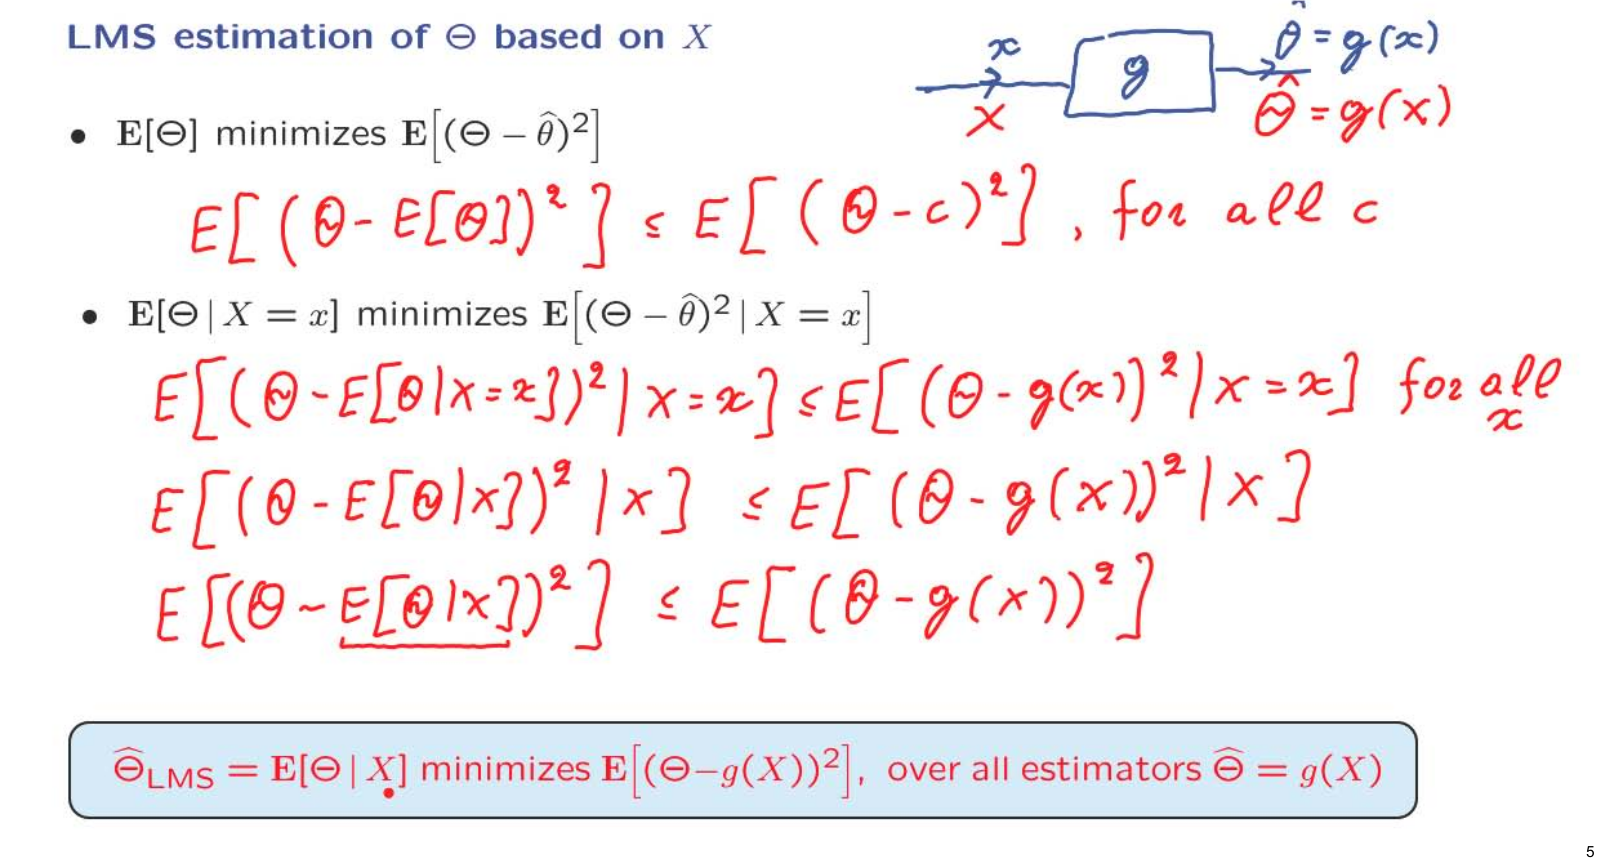 LMS estimation of Θ based on X
x
g
θ̂ = g(x)
X
Θ̂ = g(X)
• E[Θ] minimizes E[(Θ − θ̂)²]
E[(Θ - E[Θ])²] ≤ E[(Θ - c)²], for all c
• E[Θ | X = x] minimizes E[(Θ − θ̂)² | X = x]
E[(Θ - E[Θ|X=x])² | X=x] ≤ E[(Θ - g(x))² | X=x] for all x
E[(Θ - E[Θ|X])² | X] ≤ E[(Θ - g(X))² | X]
E[(Θ - E[Θ|X])²] ≤ E[(Θ - g(X))²]
Θ̂LMS = E[Θ | X] minimizes E[(Θ−g(X))²], over all estimators Θ̂ = g(X)
5